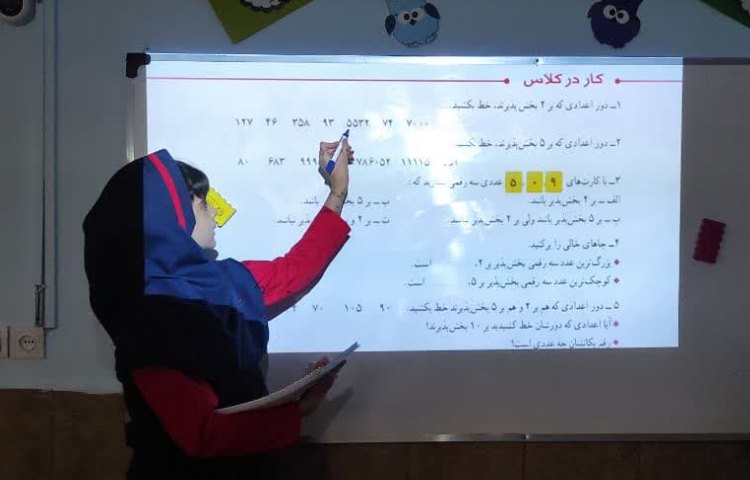 کار در کلاس
۱ــ دور اعدادی که بر ۲ بخش‌پذیرند، خط بکشید.
۱۲۷ ۴۶ ۳۵۸ ۹۳ ۵۵۳۲ ۷۴ ۷۰۰۰
۲ــ دور اعدادی که بر ۵ بخش‌پذیرند، خط بکشید.
۸۰ ۶۸۳ ۷۸۶۰۵۲ ۱۱۱۱۵
۳ــ با کارت‌های ۹ ، ۰ ، ۵ عددی سه رقمی بسازید که :
الف ــ بر ۲ بخش‌پذیر باشد. پ ــ بر ۵ بخش باشد.
ب ــ بر ۵ بخش‌پذیر باشد ولی بر ۲ بخش‌پذیر نباشد. ت ــ بر ۲ و بر بخش‌پذیر نباشد.
۴ــ جاهای خالی را پر کنید.
بزرگ‌ترین عدد سه رقمی بخش‌پذیر بر ۲، است.
کوچک‌ترین عدد سه رقمی بخش‌پذیر بر ۵، است.
۵ ــ دور اعدادی که هم بر ۲ و هم بر ۵ بخش‌پذیرند خط بکشید. ۹۰ ۱۰۵ ۷۰
آیا اعدادی که دورشان خط کشیدید بر ۱۰ بخش‌پذیرند؟
رقم یکانشان چه عددی است؟